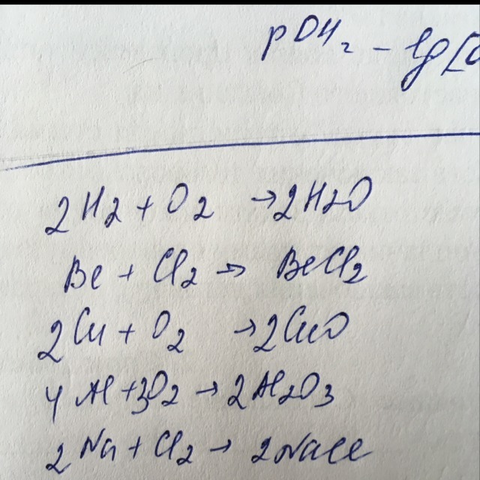 pOH = - lg[O
2H2 + O2 → 2H2O
Be + Cl2 → BeCl2
2Cu + O2 → 2CuO
4Al + 3O2 → 2Al2O3
2Na + Cl2 → 2NaCl